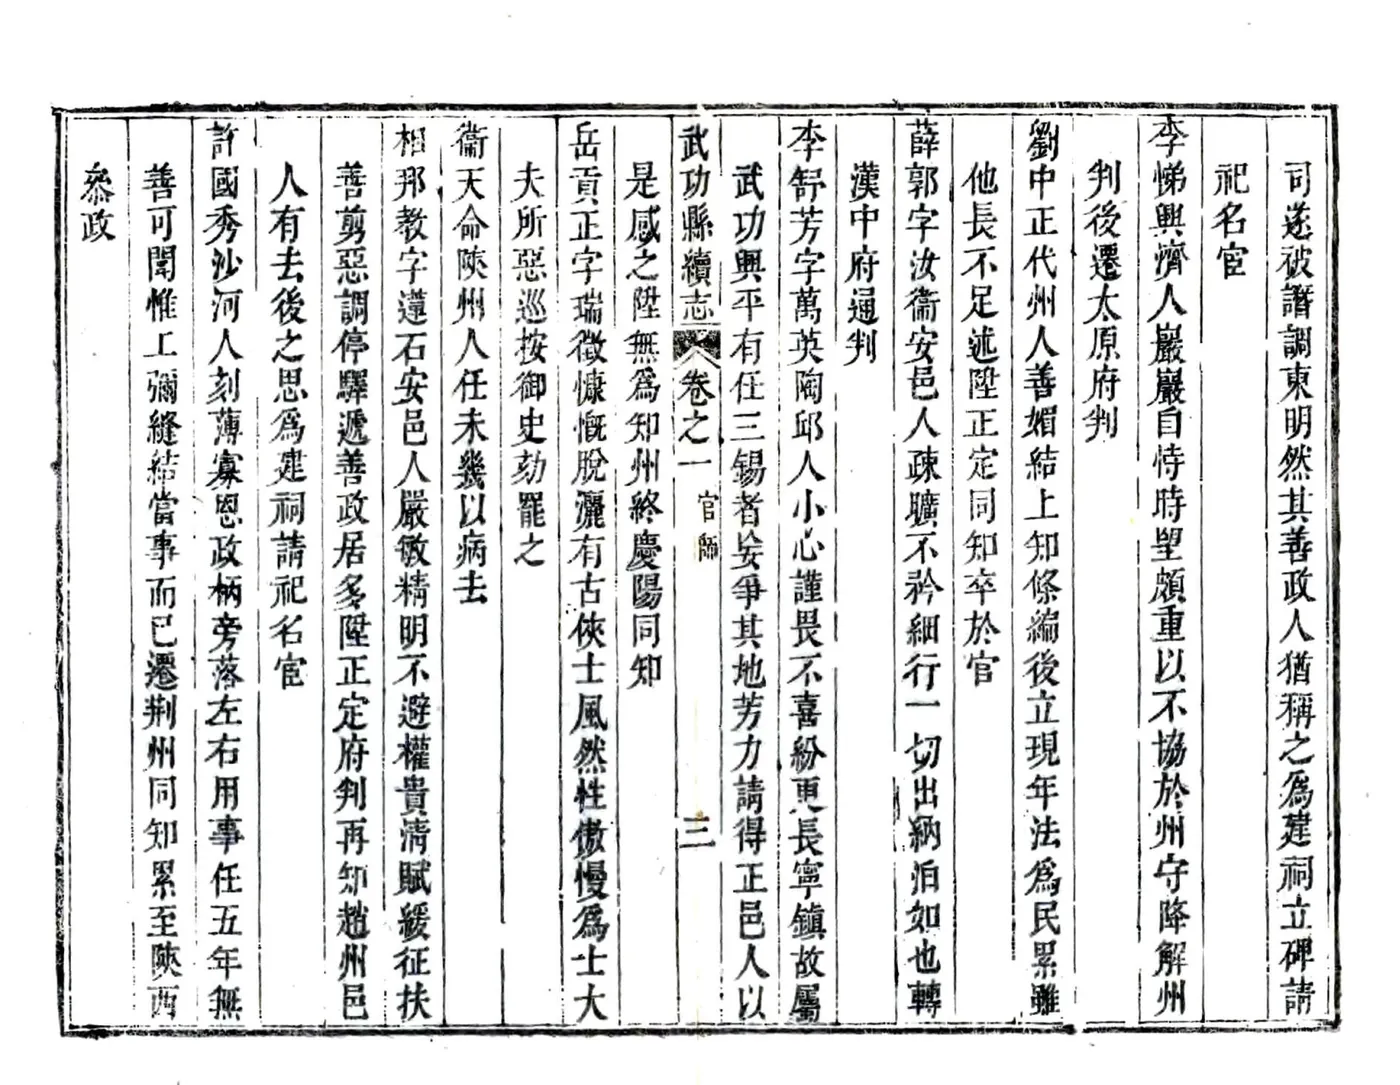 司遂被譖調東明然其善政人猶稱之為建祠立碑請
祀名宦
李悌興濟人巖巖自恃時望頗重以不協於州守降解州
判後遷太原府判
劉中正代州人善媚結上知條編後立現年法為民累雖
他長不足述陞正定同知卒於官
薛郭字汝衞安邑人疎曠不矜細行一切出納泊如也轉
漢中府通判
李舒芳字萬英陶邱人小心謹畏不喜紛更長寧鎮故屬
武功興平有任三錫者妄爭其地芳力請得正邑人以
武功縣續志 卷之一 官師 三
是感之陞無為知州終慶陽同知
岳貢正字瑞徵慷慨脫灑有古俠士風然性傲慢為士大
夫所惡巡按御史劾罷之
衞天命陝州人任未幾以病去
相邦教字蓮石安邑人嚴敏精明不避權貴清賦緩征扶
善剪惡調停驛遞善政居多陞正定府判再知趙州邑
人有去後之思為建祠請祀名宦
許國秀沙河人刻薄寡恩政柄旁落左右用事任五年無
善可聞惟工彌縫結當事而已遷荆州同知累至陝西
叅政